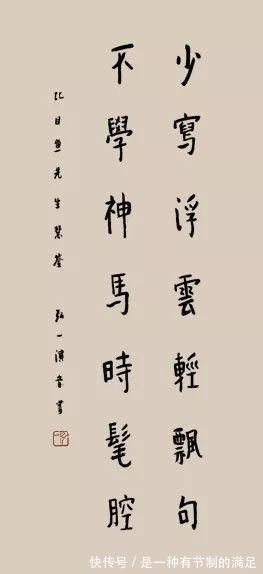 少寫浮雲輕飄句
不學神馬時髦腔
比目魚先生慧鉴 弘一演音書
快传号/是一种有节制的满足